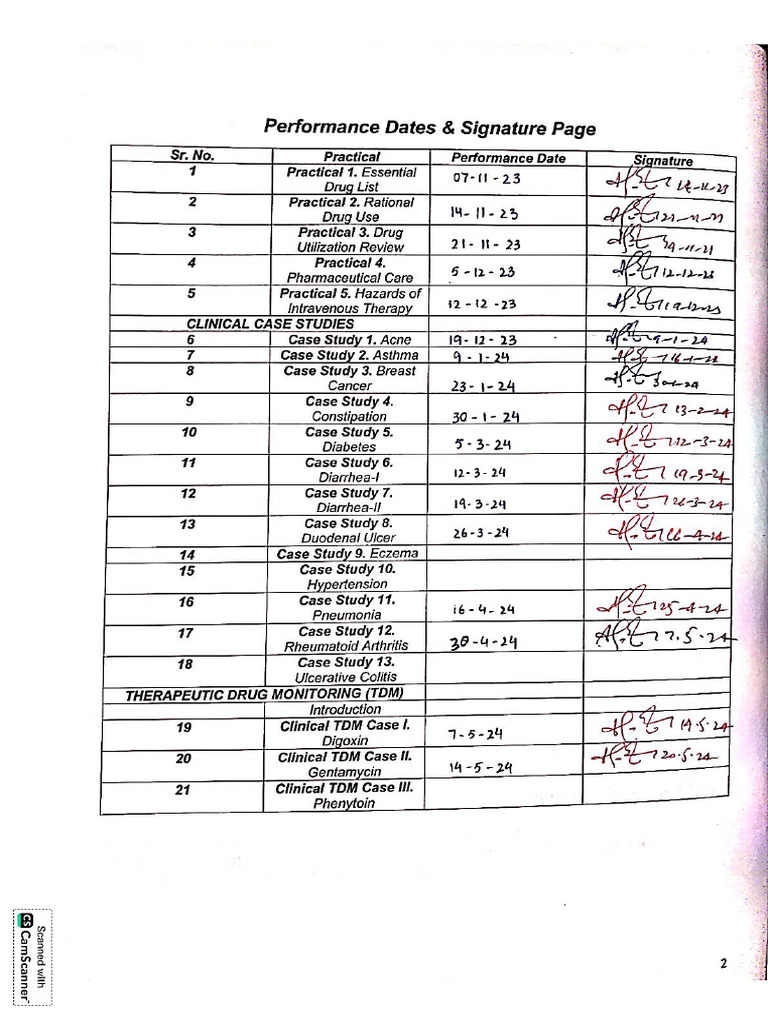 Performance Dates & Signature Page
Sr. No. Practical Performance Date Signature
1 Practical 1. Essential Drug List 07-11-23
2 Practical 2. Rational Drug Use 14-11-23
3 Practical 3. Drug Utilization Review 21-11-23
4 Practical 4. Pharmaceutical Care 5-12-23 12-12-23
5 Practical 5. Hazards of Intravenous Therapy 12-12-23 19-12-23
CLINICAL CASE STUDIES
6 Case Study 1. Acne 19-12-23 9-1-24
7 Case Study 2. Asthma 9-1-24
8 Case Study 3. Breast Cancer 23-1-24
9 Case Study 4. Constipation 30-1-24 13-2-24
10 Case Study 5. Diabetes 5-3-24 12-3-24
11 Case Study 6. Diarrhea-I 12-3-24 19-3-24
12 Case Study 7. Diarrhea-II 19-3-24 26-3-24
13 Case Study 8. Duodenal Ulcer 26-3-24
14 Case Study 9. Eczema
15 Case Study 10. Hypertension
16 Case Study 11. Pneumonia 16-4-24 25-4-24
17 Case Study 12. Rheumatoid Arthritis 30-4-24 7.5.24
18 Case Study 13. Ulcerative Colitis
THERAPEUTIC DRUG MONITORING (TDM)
Introduction
19 Clinical TDM Case I. Digoxin 7-5-24 14.5.24
20 Clinical TDM Case II. Gentamycin 14-5-24 20.5.24
21 Clinical TDM Case III. Phenytoin
2
Scanned with
CS CamScanner